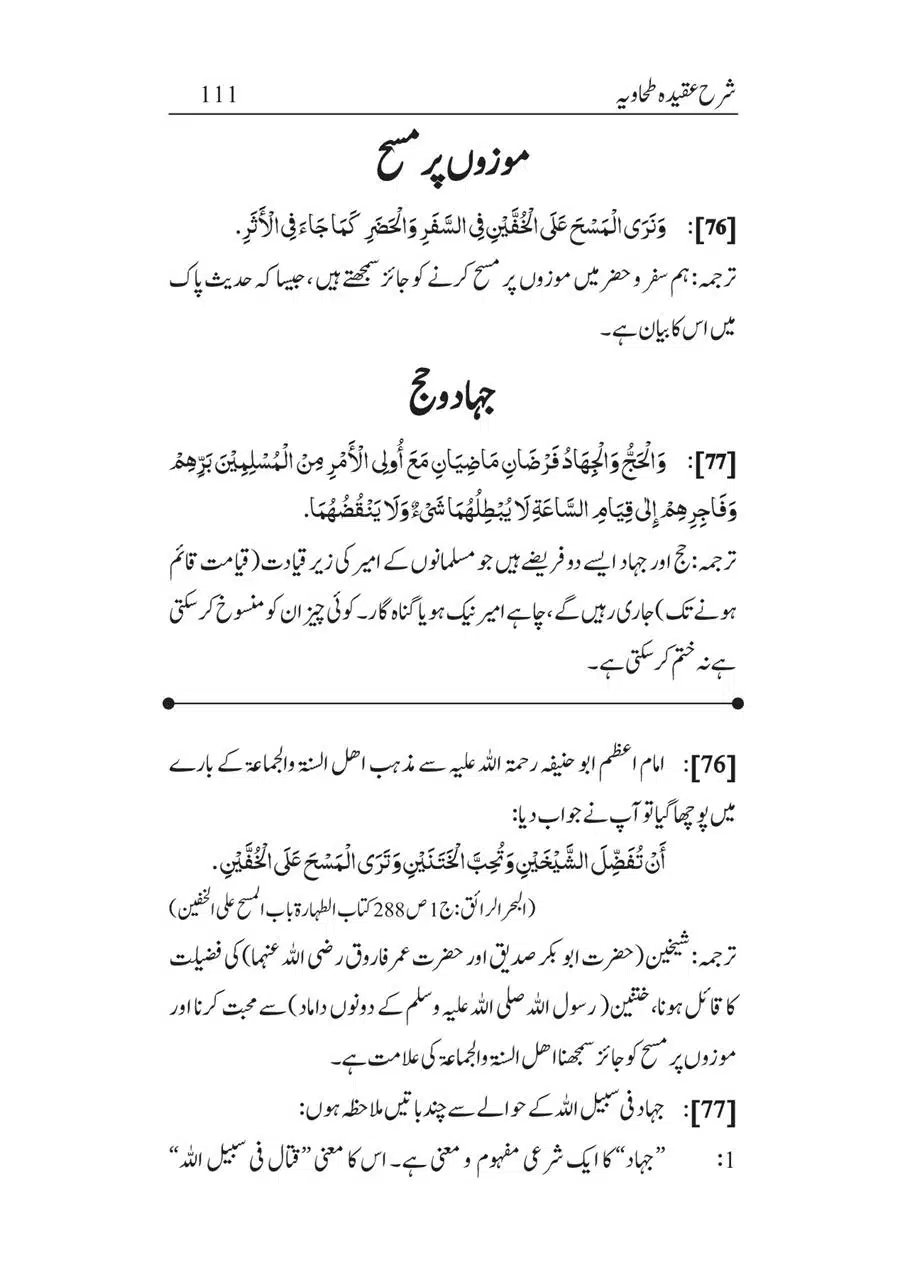 شرح عقیدہ طحاویہ 111
موزوں پر مسح
[76]: وَنَرَى الْمَسْحَ عَلَى الْخُفَّيْنِ فِي السَّفَرِ وَالْحَضَرِ كَمَا جَاءَ فِي الْأَثَرِ.
ترجمہ: ہم سفر و حضر میں موزوں پر مسح کرنے کو جائز سمجھتے ہیں، جیسا کہ حدیث پاک
میں اس کا بیان ہے۔
جہاد و حج
[77]: وَالْحَجُّ وَالْجِهَادُ فَرْضَانِ مَاضِيَانِ مَعَ أُولِي الْأَمْرِ مِنْ الْمُسْلِمِيْنَ بَرِّهِمْ
وَفَاجِرِهِمْ إِلٰى قِيَامِ السَّاعَةِ لَا يُبْطِلُهُمَا شَيْءٌ وَلَا يَنْقُضُهُمَا.
ترجمہ: حج اور جہاد ایسے دو فریضے ہیں جو مسلمانوں کے امیر کی زیر قیادت (قیامت قائم
ہونے تک) جاری رہیں گے، چاہے امیر نیک ہو یا گناہ گار۔ کوئی چیز ان کو منسوخ کر سکتی
ہے نہ ختم کر سکتی ہے۔
[76]: امام اعظم ابو حنیفہ رحمۃ اللہ علیہ سے مذہب اهل السنۃ والجماعۃ کے بارے
میں پوچھا گیا تو آپ نے جواب دیا:
أَنْ تُفَضِّلَ الشَّيْخَيْنِ وَتُحِبَّ الْخَتَنَيْنِ وَتَرَى الْمَسْحَ عَلَى الْخُفَّيْنِ.
(البحر الرائق: ج1 ص288 کتاب الطہارۃ باب المسح علی الخفین)
ترجمہ: شیخین (حضرت ابو بکر صدیق اور حضرت عمر فاروق رضی اللہ عنہما) کی فضیلت
کا قائل ہونا، ختنین (رسول اللہ صلی اللہ علیہ وسلم کے دونوں داماد) سے محبت کرنا اور
موزوں پر مسح کو جائز سمجھنا اهل السنۃ والجماعۃ کی علامت ہے۔
[77]: جہاد فی سبیل اللہ کے حوالے سے چند باتیں ملاحظہ ہوں:
1: ”جہاد“ کا ایک شرعی مفہوم و معنی ہے۔ اس کا معنی ”قتال فی سبیل اللہ“